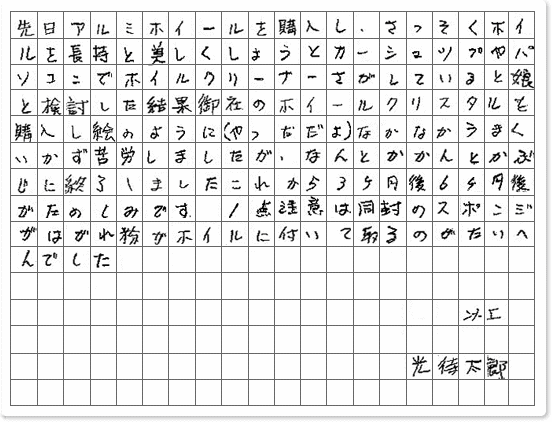 先日アルミホイールを購入し、さっそくホイ
ルを長持と美しくしようとカーショップやパ
ソコンでホイルクリーナーさがしていると娘
と検討した結果御社のホイールクリスタルを
購入し絵のように(やっだだよ)なかなかうまく
いかず苦労しましたが、なんとかかんとかぶ
じに終了しましたこれから3ケ月後6ケ月後
がたのしみです。1点注意は同封のスポンジ
がはがれ粉がホイルに付いて取るのがたいへ
んでした
以上
光待太郎